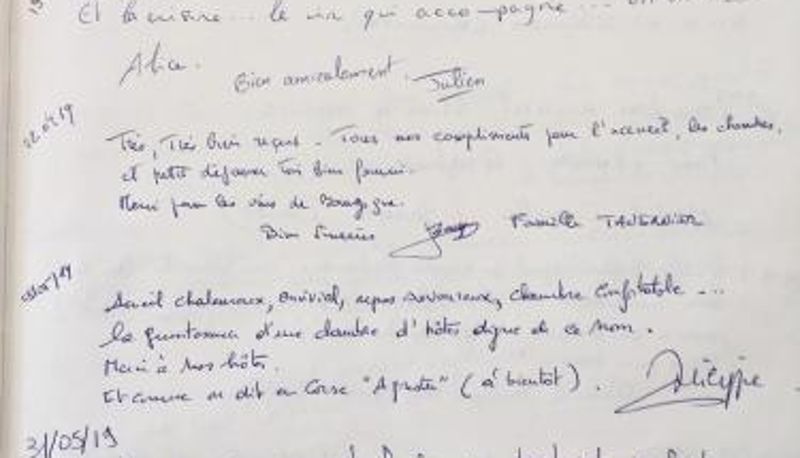 Et la cuisine... le vin qui accompagne...
Alice.
Bien amicalement. Julien
Très, Très bien reçus. Tous nos compliments pour l'accueil, les chambres,
et petit déjeuner très bien fourni.
Merci pour les vins de Bourgogne.
Bien Sincères Famille TAVERNIER
Accueil chaleureux, convivial, repas savoureux, chambre confortable ...
la quintessence d'une chambre d'hôtes digne de ce nom.
Merci à nos hôtes.
Et comme on dit en Corse "A prestu" (à bientôt). Philippe
21/05/19